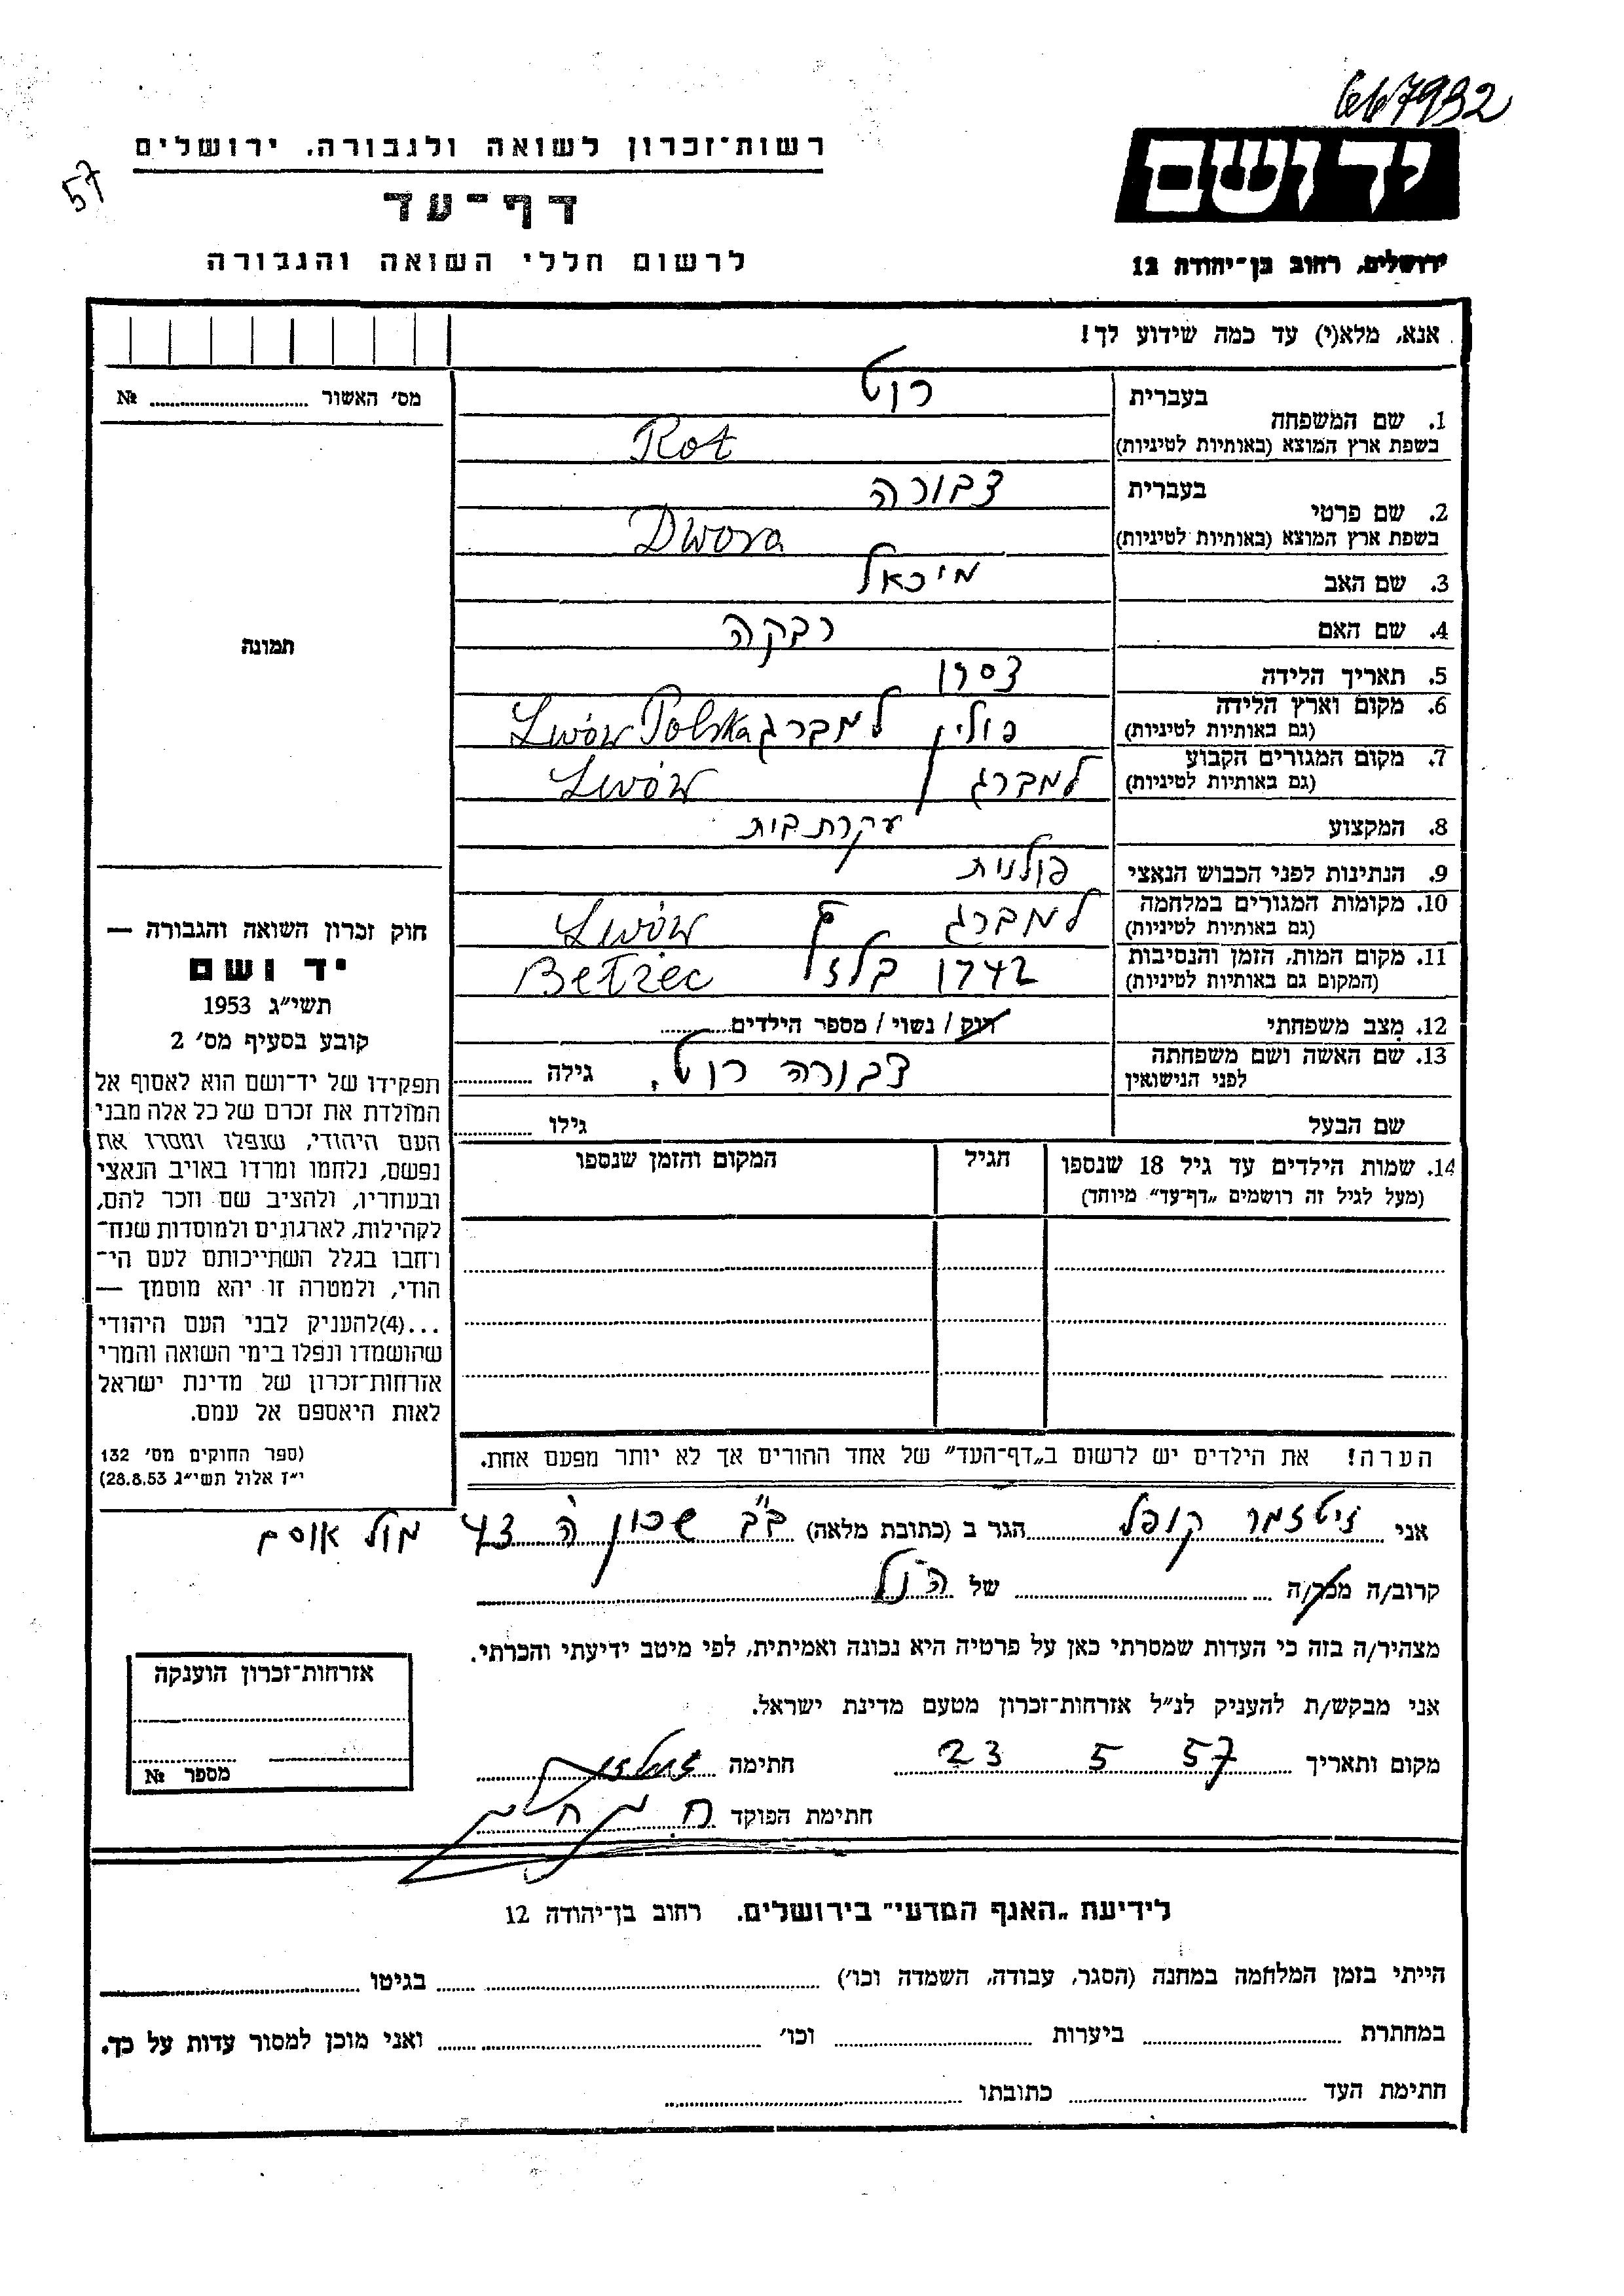 667932
57
רשות־זכרון לשואה ולגבורה. ירושלים
דף־עד
לרשום חללי השואה והגבורה
יד ושם
ירושלים, רחוב בן־יהודה 12
אנא, מלא(י) עד כמה שידוע לך!
מס׳ האשור № 
1. שם המשפחה בעברית רוט
בשפת ארץ המוצא (באותיות לטיניות) Rot
2. שם פרטי בעברית דבורה
בשפת ארץ המוצא (באותיות לטיניות) Dwora
3. שם האב מיכאל
4. שם האם רבקה
תמונה
5. תאריך הלידה
6. מקום וארץ הלידה פולין למברג Lwów Polska
(גם באותיות לטיניות)
7. מקום המגורים הקבוע למברג Lwów
(גם באותיות לטיניות)
8. המקצוע עקרת בית
9. הנתינות לפני הכבוש הנאצי פולנית
10. מקומות המגורים במלחמה למברג Lwów
(גם באותיות לטיניות)
11. מקום המות, הזמן והנסיבות 1942 Betzec
(המקום גם באותיות לטיניות)
12. מצב משפחתי רוק / נשוי / מספר הילדים
13. שם האשה ושם משפחתה דבורה רוט. גילה
לפני הנישואין
שם הבעל גילו
14. שמות הילדים עד גיל 18 שנספו הגיל המקום והזמן שנספו
(מעל לגיל זה רושמים „דף־עד” מיוחד)
הערה! את הילדים יש לרשום ב„דף־העד” של אחד ההורים אך לא יותר מפעם אחת.
חוק זכרון השואה והגבורה —
יד ושם
תשי״ג 1953
קובע בסעיף מס׳ 2
תפקידו של יד־ושם הוא לאסוף אל
המולדת את זכרם של כל אלה מבני
העם היהודי, שנפלו ומסרו את
נפשם, נלחמו ומרדו באויב הנאצי
ובעוזריו, ולהציב שם וזכר להם,
לקהילות, לארגונים ולמוסדות שנח־
רחבו בגלל השתייכותם לעם הי־
הודי, ולמטרה זו יהא מוסמך —
...(4)להעניק לבני העם היהודי
שהושמדו ונפלו בימי השואה והמרי
אזרחות־זכרון של מדינת ישראל
לאות היאספם אל עמם.
(ספר החוקים מס׳ 132
י״ז אלול תשי״ג 28.8.53)
אני זיטזמר קופל הגר ב (כתובת מלאה) ב״ב שכון ה׳ 43 מול אוסם
קרוב/ה מכר/ה של הנ״ל
מצהיר/ה בזה כי העדות שמסרתי כאן על פרטיה היא נכונה ואמיתית, לפי מיטב ידיעתי והכרתי.
אני מבקש/ת להעניק לנ״ל אזרחות־זכרון מטעם מדינת ישראל.
מקום ותאריך 57 5 23 חתימה
חתימת הפוקד
אזרחות־זכרון הוענקה
מספר №
לידיעת „האגף המדעי” בירושלים. רחוב בן־יהודה 12
הייתי בזמן המלחמה במחנה (הסגר, עבודה, השמדה וכו׳) בגיטו
במחתרת ביערות וכו׳ ואני מוכן למסור עדות על כך.
חתימת העד כתובתו